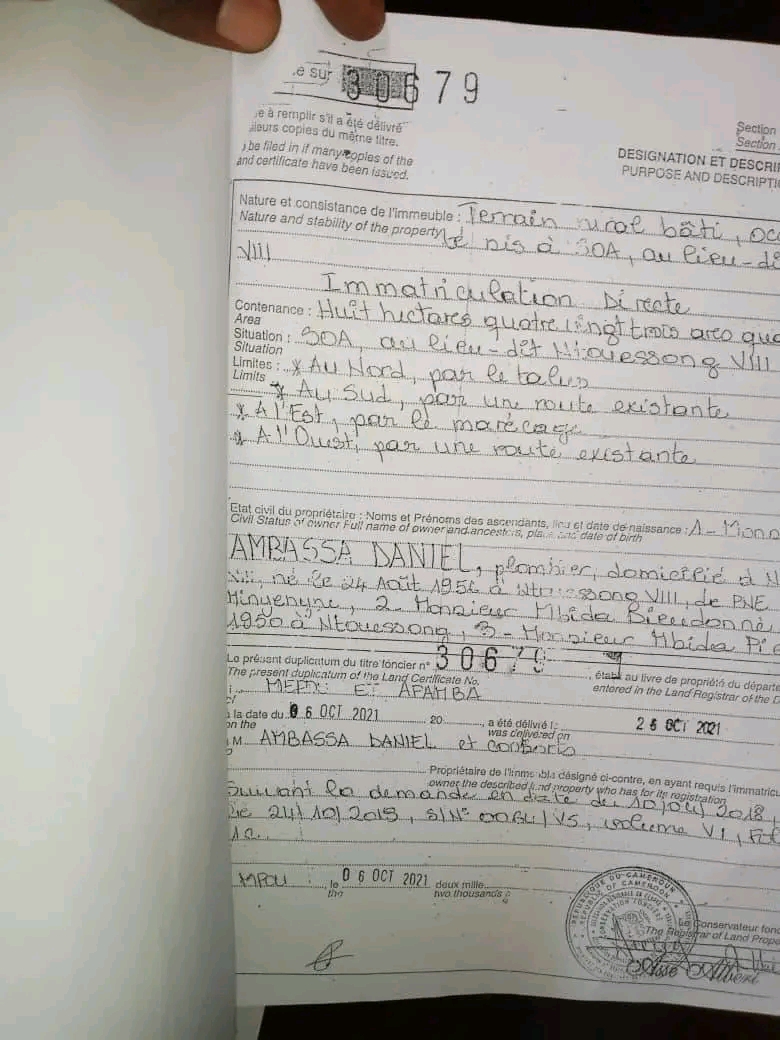 e sur 30679
e à remplir s'il a été délivré
ieurs copies du même titre.
be filed in if many copies of the
and certificate have been issued.
Section
Section
DESIGNATION ET DESCRI
PURPOSE AND DESCRIPTI
Nature et consistance de l'immeuble : Terrain rural bâti, occ
Nature and stability of the property sis à SOA, au lieu-di
VIII
Immatriculation Directe
Contenance : Huit hectares quatre vingt trois ares qua
Area
Situation : SOA, au lieu-dit Ntouessong VIII
Situation
Limites : * Au Nord, par le talus
Limits * Au Sud, par une route existante
* A l'Est, par le marécage
* A l'Ouest, par une route existante
Etat civil du propriétaire : Noms et Prénoms des ascendants, lieu et date de naissance : 1-Mons
Civil Status of owner Full name of owner and ancestors, place and date of birth
AMBASSA DANIEL, plombier, domicilié à N
VIII, né le 24 Août 1956 à Ntouessong VIII, de PNE
2- Monsieur Mbida Dieudonné
1950 à Ntouessong, 3- Monsieur Mbida Pie
Le présent duplicatum du titre foncier n° 30679 , établi au livre de propriété du départe
The present duplicatum of the Land Certificate No. entered in the Land Registrar of the D
MEFOU ET AFAMBA
à la date du 06 OCT 2021 20 , a été délivré le 26 OCT 2021
on the was delivered on
M AMBASSA DANIEL et consorts
Propriétaire de l'immeuble désigné ci-contre, en ayant requis l'immatricu
owner the described land property who has for its registration
Suivant la demande en date du 2018,
le 24/10/2018, volume VI, Fol
MFOU , le 06 OCT 2021 deux mille
the two thousands
REPUBLIQUE DU CAMEROUN
REPUBLIC OF CAMEROON
CONSERVATION FONCIERE
Le Conservateur fonc
The Registrar of Land Prope
Albert